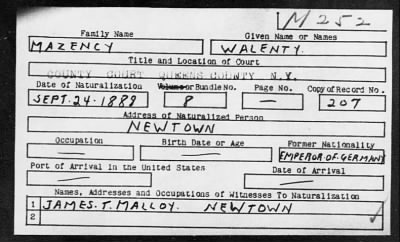 M252
Family Name Given Name or Names
MAZENCY WALENTY.
Title and Location of Court
COUNTY COURT QUEENS COUNTY N.Y.
Date of Naturalization Volume or Bundle No. Page No. Copy of Record No.
SEPT. 24-1888 8 — 207
Address of Naturalized Person
NEWTOWN
Occupation Birth Date or Age Former Nationality
— — EMPEROR OF GERMANY
Port of Arrival in the United States Date of Arrival
— —
Names, Addresses and Occupations of Witnesses To Naturalization
1 JAMES. T. MALLOY. NEWTOWN
2